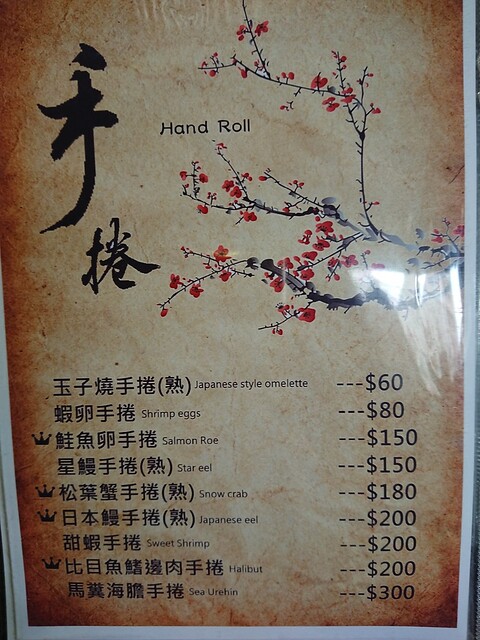 手捲
Hand Roll
玉子燒手捲(熟) Japanese style omelette ---$60
蝦卵手捲 Shrimp eggs ---$80
鮭魚卵手捲 Salmon Roe ---$150
星鰻手捲(熟) Star eel ---$150
松葉蟹手捲(熟) Snow crab ---$180
日本鰻手捲(熟) Japanese eel ---$200
甜蝦手捲 Sweet Shrimp ---$200
比目魚鰭邊肉手捲 Halibut ---$200
馬糞海膽手捲 Sea Urehin ---$300